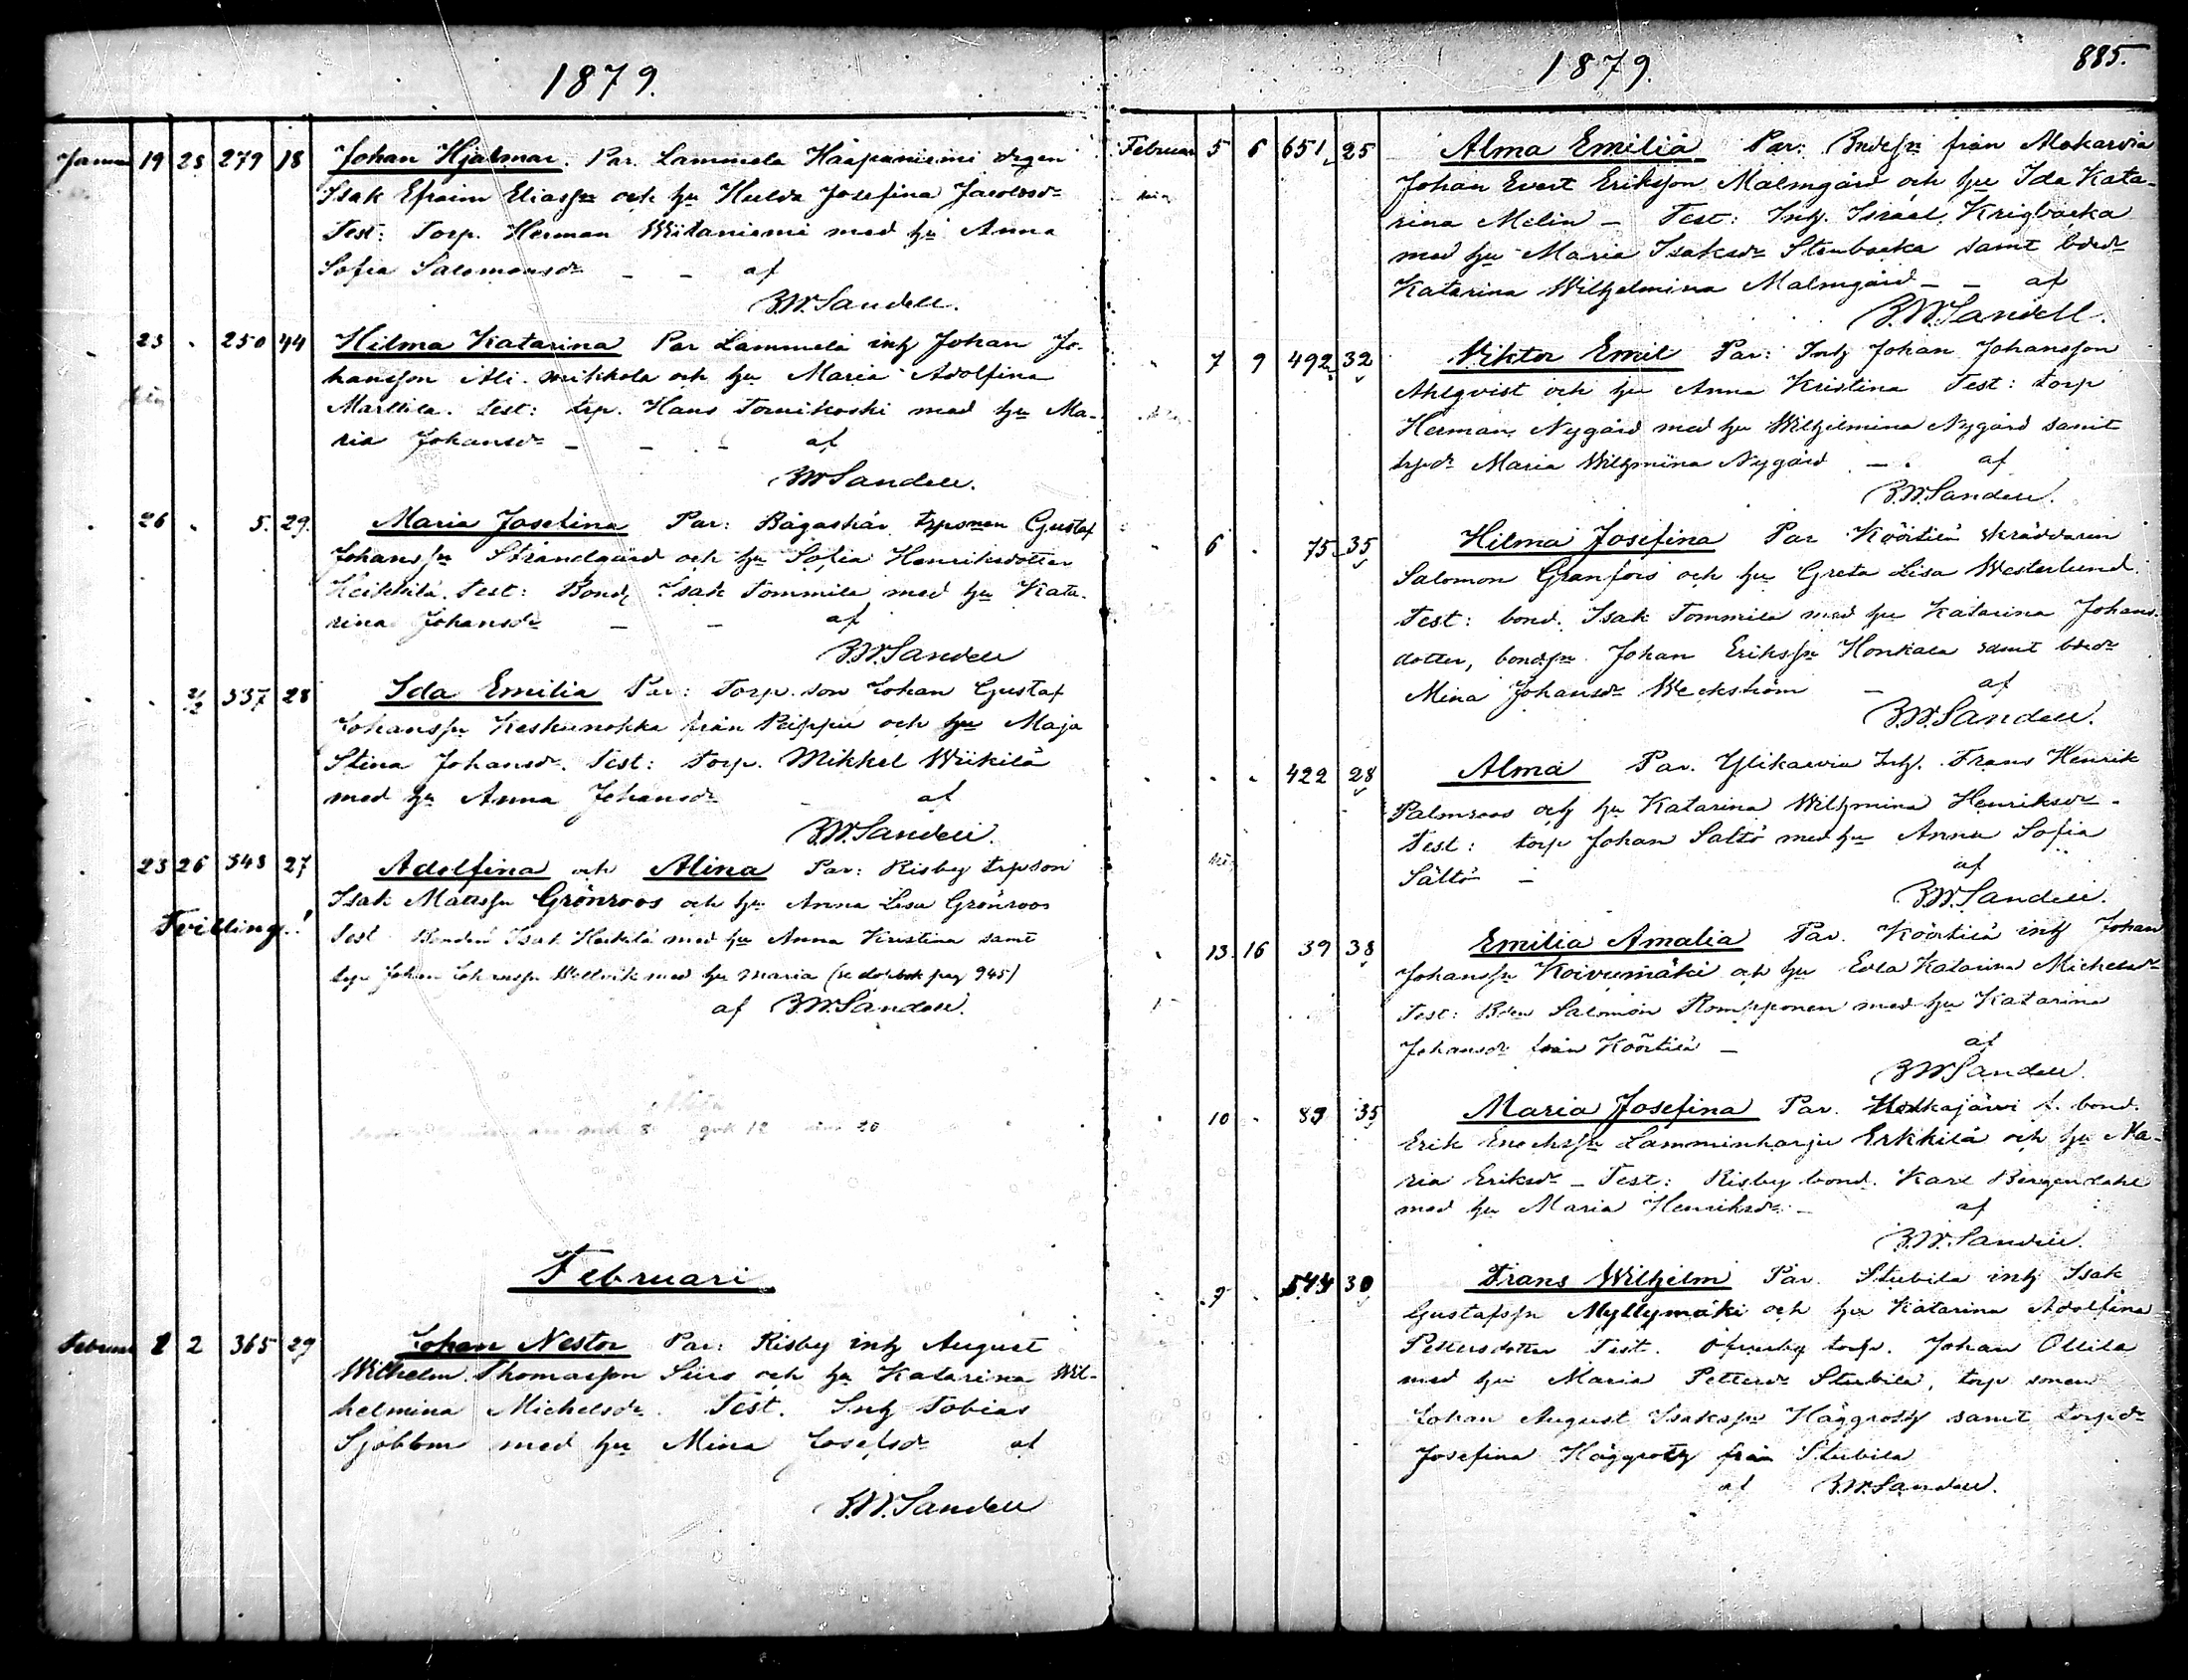 1879.
Janua 19 25 279 18 Johan Hjalmar. Par. Lammela Haapaniemi drgen
Isak Efraim Eliassn och hu Hulda Josefina Jacobsdr
Test: Torp. Herman Wiitaniemi med hu Anna
Sofia Salomonsdr – – af
Z.W.Sandell.
" 23 " 250 44 Hilma Katarina Par Lammela inh Johan Jo-
hansson Ali-mikkola och hu Maria Adolfina
Marttila. test: trp. Hans Tornikoski med hu Ma-
ria Johansdr – – – af
ZWSandell.
" 26 " 5. 29. Maria Josefina Par: Bågaskär trpsonen Gustaf
Johanssn Strandgård och hu Sofia Henriksdotter
Heikkilä. test: Bond. Isak Tommila med hu Kata-
rina Johansdr – – af
Z.W.Sandell
" " 2/2 337 28 Ida Emilia Par: Torp. son Johan Gustaf
Johanssn Keskunokka från Peippu och hu Maja
Stina Johansdr. Test: torp. Mikkel Wiikilä
med hu Anna Johansdr – af
Z.W.Sandell.
" 23 26 343 27 Adolfina och Alina Par: Risby trpson
Isak Mattssn Grönroos och hu Anna Lisa Grönroos
Tvilling.!
Test Bonden Isak Heikilä med hu Anna Kristina samt
trp Johan Johanssn Wellvik med hu Maria (se dobok pag 945)
af Z.W.Sandell.
Februari
Februa 1 2 365 29 Johan Nestor Par: Risby inh August
Wilhelm Thomasson Siirs och hu Katarina Wil-
helmina Michelsdr. Test. Inh Tobias
Sjöblom med hu Mina Josefsdr af
Z.W.Sandell
1879. 885.
Februar 5 6 651 25 Alma Emilia Par: Bndesn från Makarvia
Johan Evert Eriksson Malmgård och hu Ida Kata-
rina Melin – Test: Inh. Israel Krigbacka
med hu Maria Isaksdr Stenbacka samt bdr
Katarina Wilhelmina Malmgård – – af
Z.W.Sandell.
" 7 9 492 32 Viktor Emil Par: Inh Johan Johansson
Ahlqvist och hu Anna Kristina Test: torp
Herman Nygård med hu Wilhelmina Nygård samt
trpdr Maria Wilhmina Nygård – . af
Z.W.Sandell.
" 6 " 75 35 Hilma Josefina Par Köörtilä skräddaren
Salomon Granfors och hu Greta Lisa Westerlund.
Test: bond. Isak Tommila med hu Katarina Johans-
dotter, bondsn Johan Erikssn Honkala samt bdr
Mina Johansdr Weckström – af
Z.W.Sandell.
" " " 422 28 Alma Par. Ylikarvia Inh. Frans Henrik
Palmroos och hu Katarina Wilhmina Henriksdr.
Test: torp Johan Saltö med hu Anna Sofia
Saltö – af
Z.W.Sandell.
" 13 16 39 38 Emilia Amalia Par. Köörtilä inh Johan
Johanssn Koivumäki och hu Eva Katarina Michelsdr
Test: Bden Salomon Rompponen med hu Katarina
Johansdr från Köörtilä – af
Z.W.Sandell.
" 10 " 89 35 Maria Josefina Par. f. bond.
Erik Enochssn Lamminharju Erkkilä och hu Ma-
ria Eriksdr – Test: Risby bond. Karl Bergendahl
med hu Maria Henriksdr – af
Z.W.Sandell.
" 9 " 544 30 Frans Wilhelm Par. Stubila inh Isak
Gustafssn Myllymäki och hu Katarina Adolfina
Pettersdotter Test. torp. Johan Ollila
med hu Maria Pettersdr Stubila, torp sonen
Johan August Isakssn Häggroth samt torpdr
Josefina Häggroth från Stubila
af Z.W.Sandell.